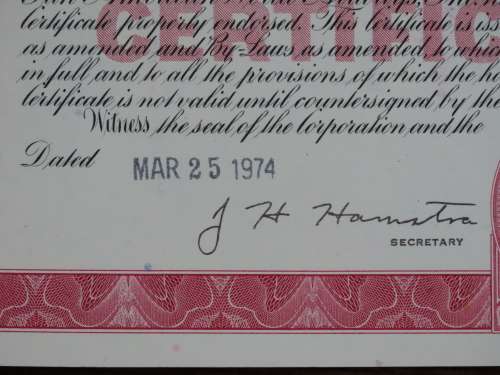 certificate property endorsed. This certificate is iss
CERTIFIC
as amended and By-Laws as amended to who
in full and to all the provisions of which the ho
certificate is not valid until countersigned by the
Witness, the seal of the Corporation and the
Dated MAR 25 1974
J H Hamstra
SECRETARY